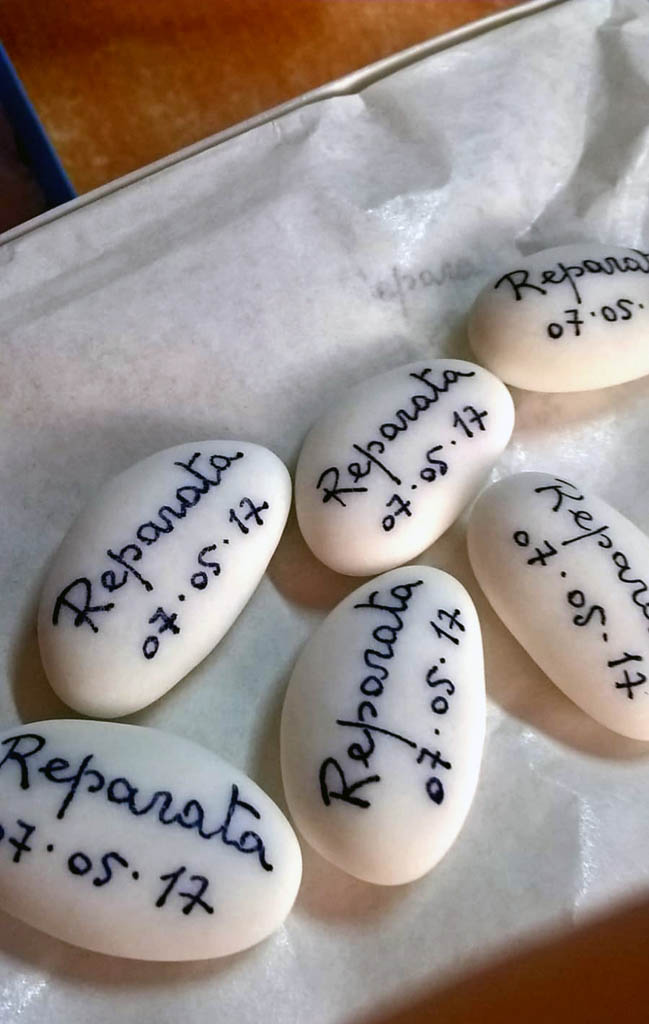 Reparat
07.05.
Reparata
07.05.17
Reparata
07.05.17
Repara
07.05.17
Reparata
07.05.17
Reparata
07.05.17
Repara